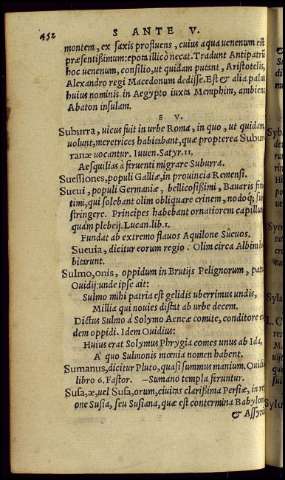 452 S ANTE V.
montem, ex saxis profluens, cuius aqua uenenum est
præsentißimum: epota illicò necat. Tradunt Antipatrũ
hoc uenenum, consilio, ut quidam putant, Aristotelis,
Alexandro regi Macedonum dedisse. Est & alia palus
huius nominis in Aegypto iuxta Memphim, ambiens
Abaton insulam.
S V.
Suburra, uicus fuit in urbe Romæ, in quo, ut quidam
uolunt, meretrices habitabant, quæ propterea Subur-
ranæ uocantur. Iuuen. Satyr. 11.
Aesquilias à feruenti migrare Suburra.
Suessiones, populi Galliæ, in prouincia Remensi.
Sueui, populi Germaniæ, bellicosißimi, Bauaris fini
timi, qui solebant olim obliquare crinem, nodoq́;
stringere. Principes habebant ornatiorem capillum
quàm plebeij. Lucan. lib. 1.
Fundat ab extremo flauos Aquilone Sueuos.
Sueuia, dicitur eorum regio. Olim circa Albim
biturunt.
Sulmo, onis, oppidum in Brutijs Pelignorum,
Ouidij: unde ipse ait:
Sulmo mihi patria est gelidis uberrimus undis,
Millia qui nouies distat ab urbe decem.
Dictus Sulmo à Solymo Aeneæ comite, conditore
dem oppidi. Idem Ouidius:
Huius erat Solymus Phrygia comes unus ab Ida,
A' quo Sulmonis mœnia nomen habent.
Sumanus, dicitur Pluto, quasi summus manium. Ouid.
libro 6. Fastor. –Sumano templa feruntur.
Susa, æ, uel Susa, orum, ciuitas clarißima Persiæ, in
one Susia, seu Susiana, quæ est contermina Babylon
& Assyri